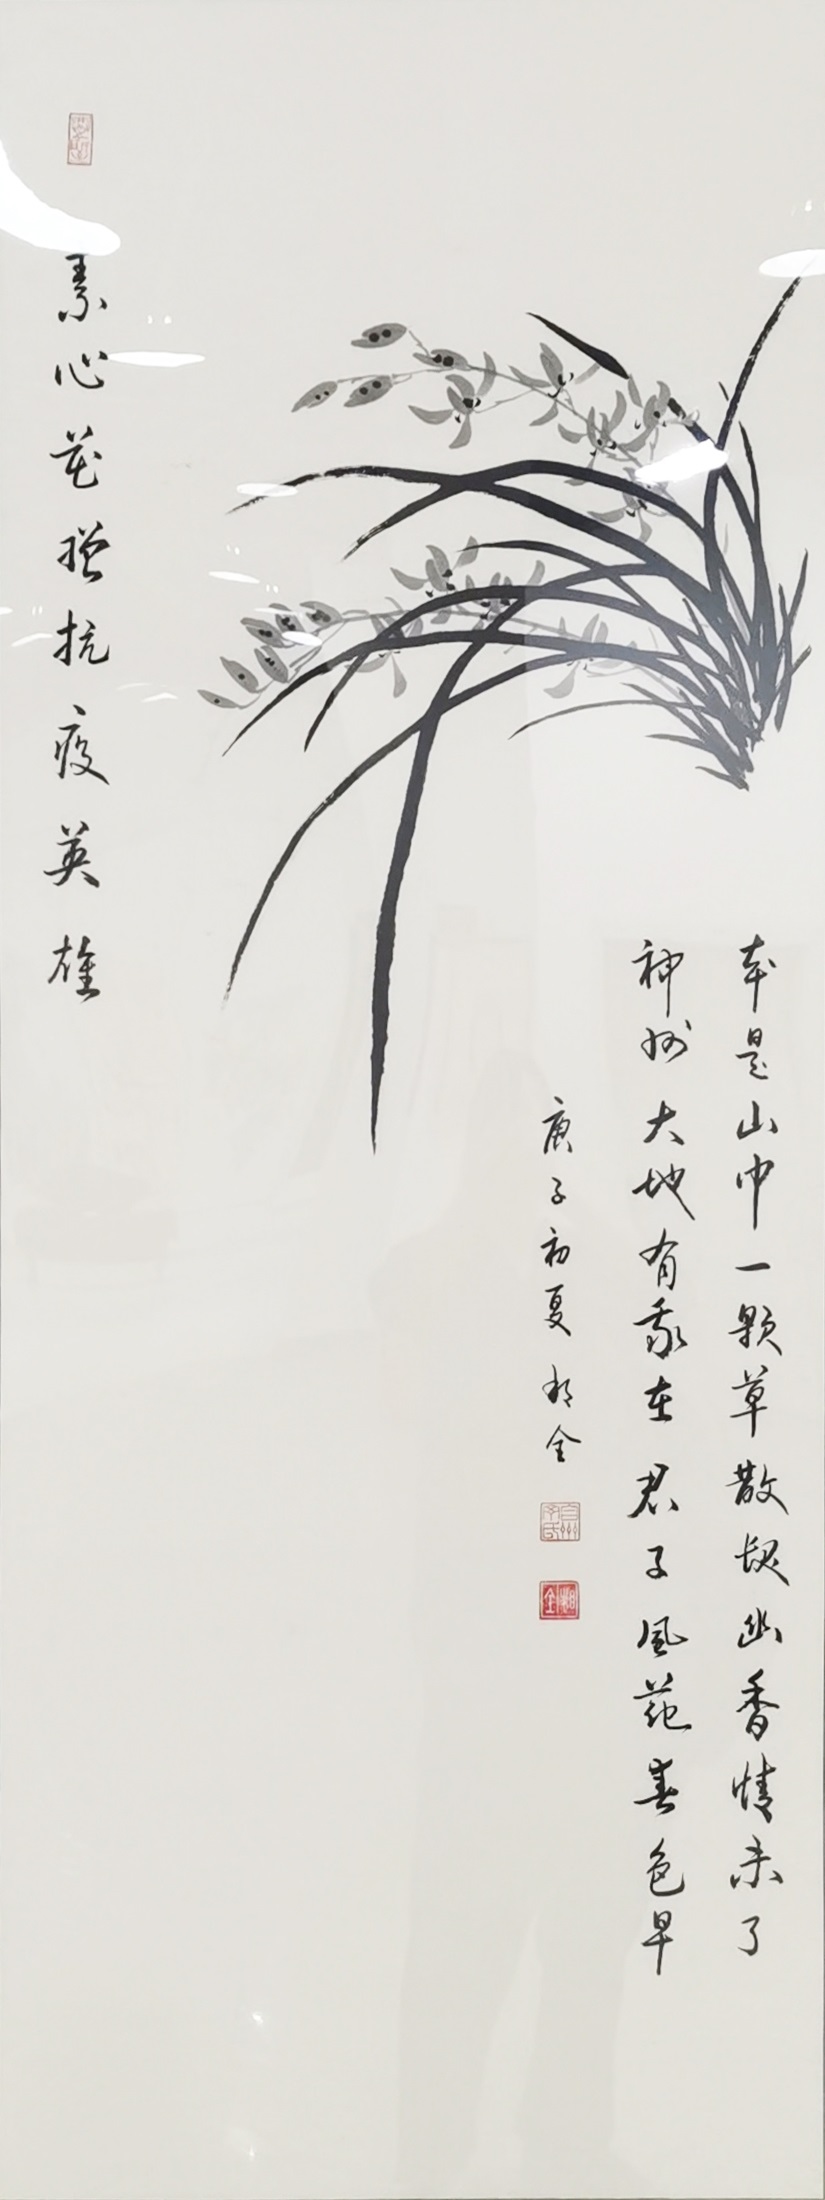 素心花赠抗疫英雄
本是山中一颗草散幽香情未了
神州大地有我在君子风范春色早
庚子初夏 全